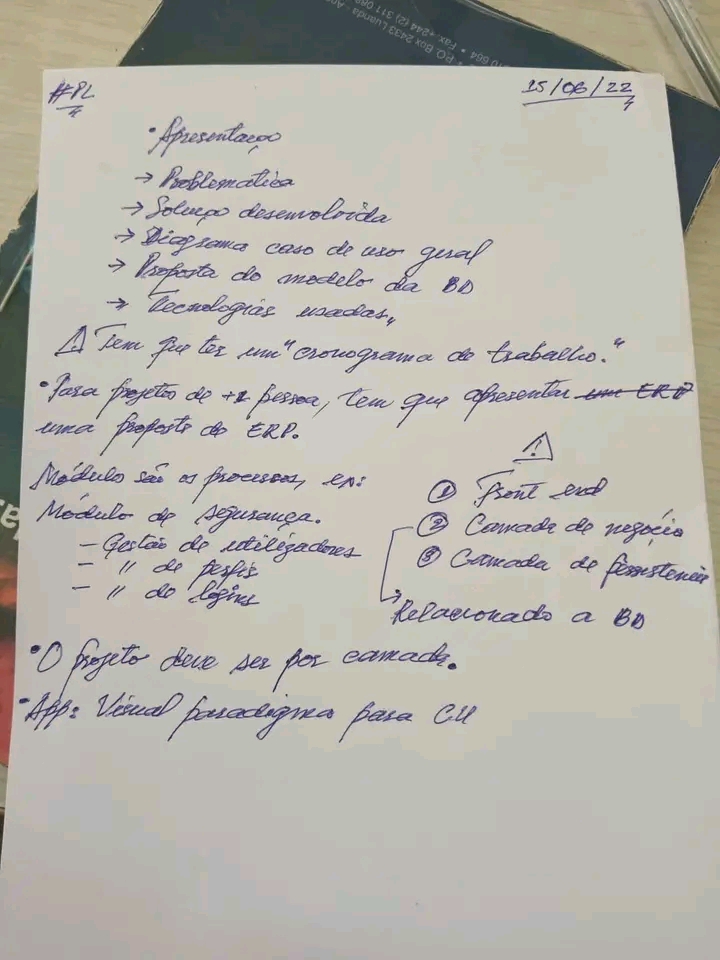 P.O. Box 2433 Luanda
Fax. +244 (2) 311
#PL
15/06/22
• Apresentaço
→ Problematica
→ Soluço desenvolvida
→ Diagrama caso de uso geral
→ Proposta do modelo da BD
→ Tecnologias usadas,,
⚠ Tem que ter um "cronograma de trabalho."
• Para projetos de +1 pessoa, tem que apresentar um ERP
uma proposta do ERP.
Módulo são os processos, ex:
Módulo de segurança.
— Gestão de utilizadores
— " de perfis
— " do logins
⚠
① Front end
② Camada de negócio
③ Camada de persistencia
Relacionado a BD
• O projeto deve ser por camada.
• App: Visual paradigma para CU